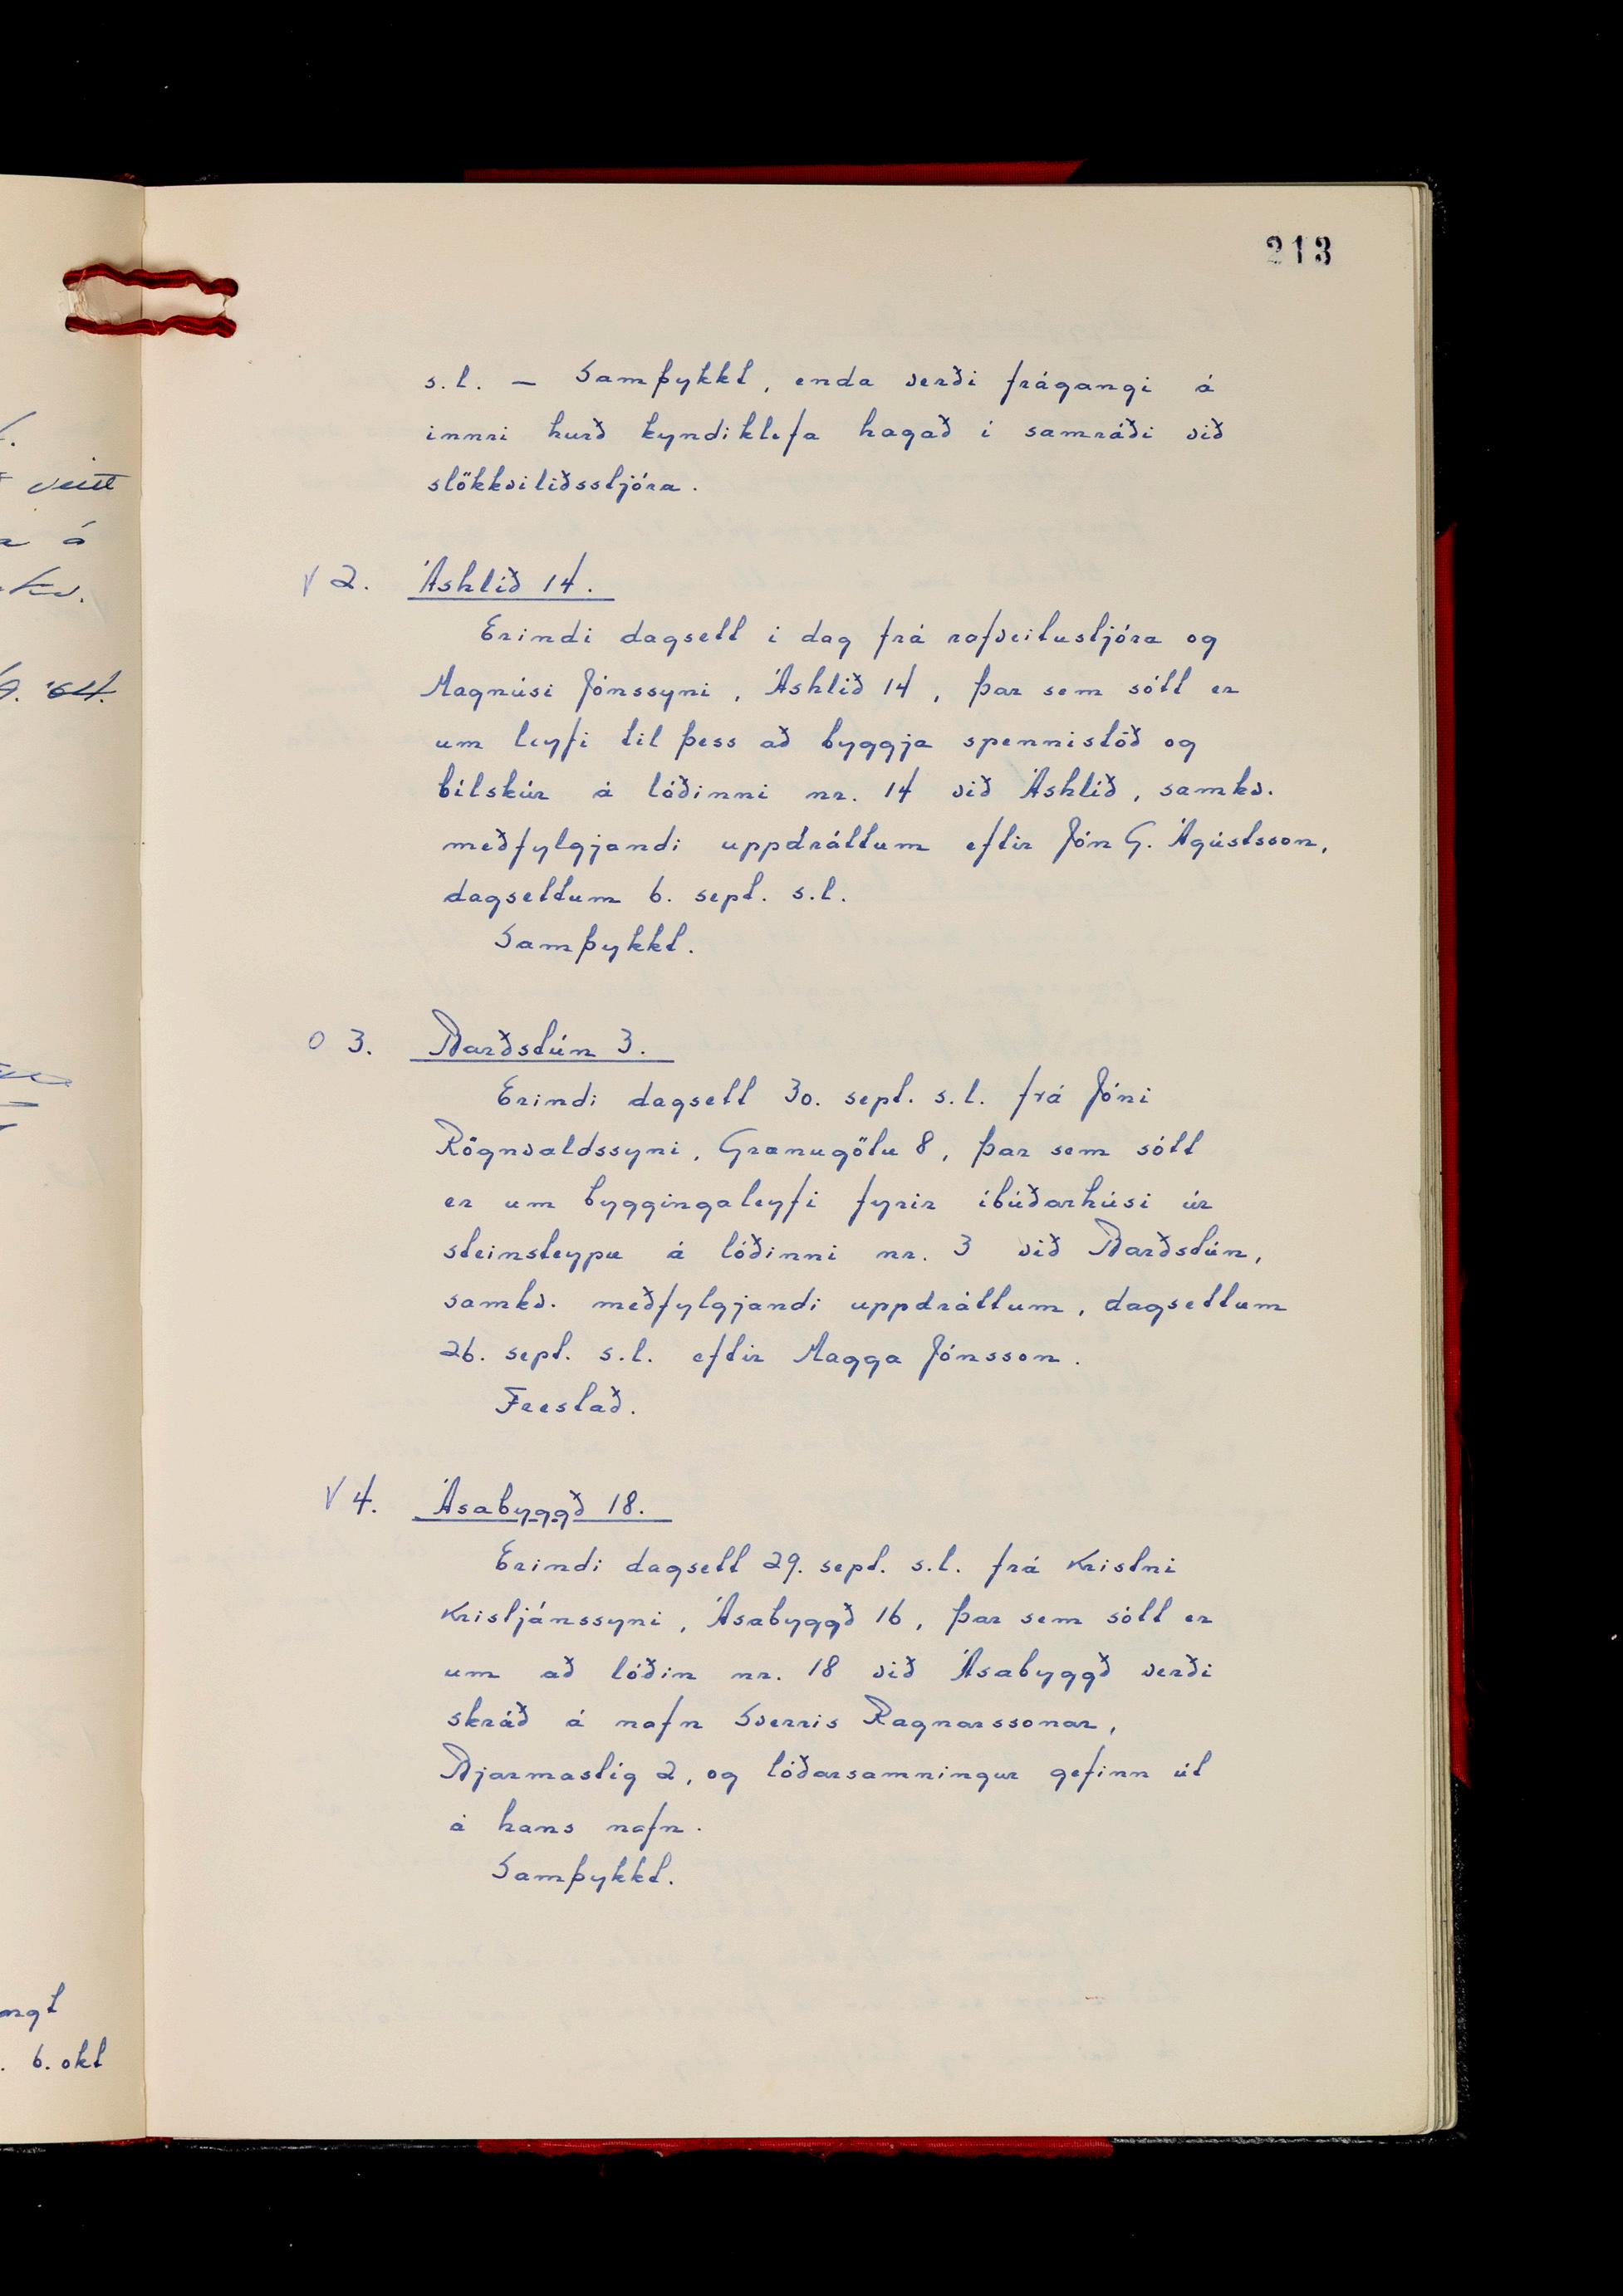 213
s.l. — Samþykkt, enda verði frágangi á
innri hurð kyndiklefa hagað í samráði við
slökkviliðsstjóra.
V 2. Áshlíð 14.
Erindi dagsett í dag frá rafveitustjóra og
Magnúsi Jónssyni, Áshlíð 14, þar sem sótt er
um leyfi til þess að byggja spennistöð og
bílskúr á lóðinni nr. 14 við Áshlíð, samkv.
meðfylgjandi uppdráttum eftir Jón G. Ágústsson,
dagsettum 6. sept. s.l.
Samþykkt.
O 3. Barðstún 3.
Erindi dagsett 30. sept. s.l. frá Jóni
Rögnvaldssyni, Grænugötu 8, þar sem sótt
er um byggingaleyfi fyrir íbúðarhúsi úr
steinsteypu á lóðinni nr. 3 við Barðstún,
samkv. meðfylgjandi uppdráttum, dagsettum
26. sept. s.l. eftir Magga Jónsson.
Frestað.
V 4. Ásabyggð 18.
Erindi dagsett 29. sept. s.l. frá Kristni
Kristjánssyni, Ásabyggð 16, þar sem sótt er
um að lóðin nr. 18 við Ásabyggð verði
skráð á nafn Sverris Ragnarssonar,
Bjarmastíg 2, og lóðarsamningur gefinn út
á hans nafn.
Samþykkt.
veitt
á
'64.
6. okt